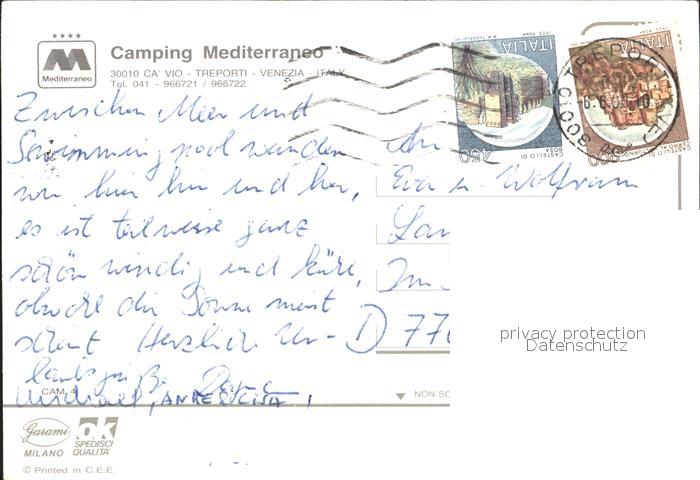 Mediterraneo
Camping Mediterraneo
30010 CA' VIO - TREPORTI - VENEZIA - ITALY
Tel. 041 - 966721 / 966722
ITALIA
450
CASTELLO DI
ROSA
ITALIA
Zwischen Meer und
Swimmingpool wandern
wir hin und her,
es ist teilweise ganz
schön windig und kühl,
obwohl die Sonne meist
scheint Herzliche Ur-
laubsgrüße
Michael,
An
Eva u. Wolfram
D 77
CAM.
NON SC
privacy protection
Datenschutz
Garami
MILANO
ok
SPEDISCI
QUALITÀ
© Printed in C.E.E.